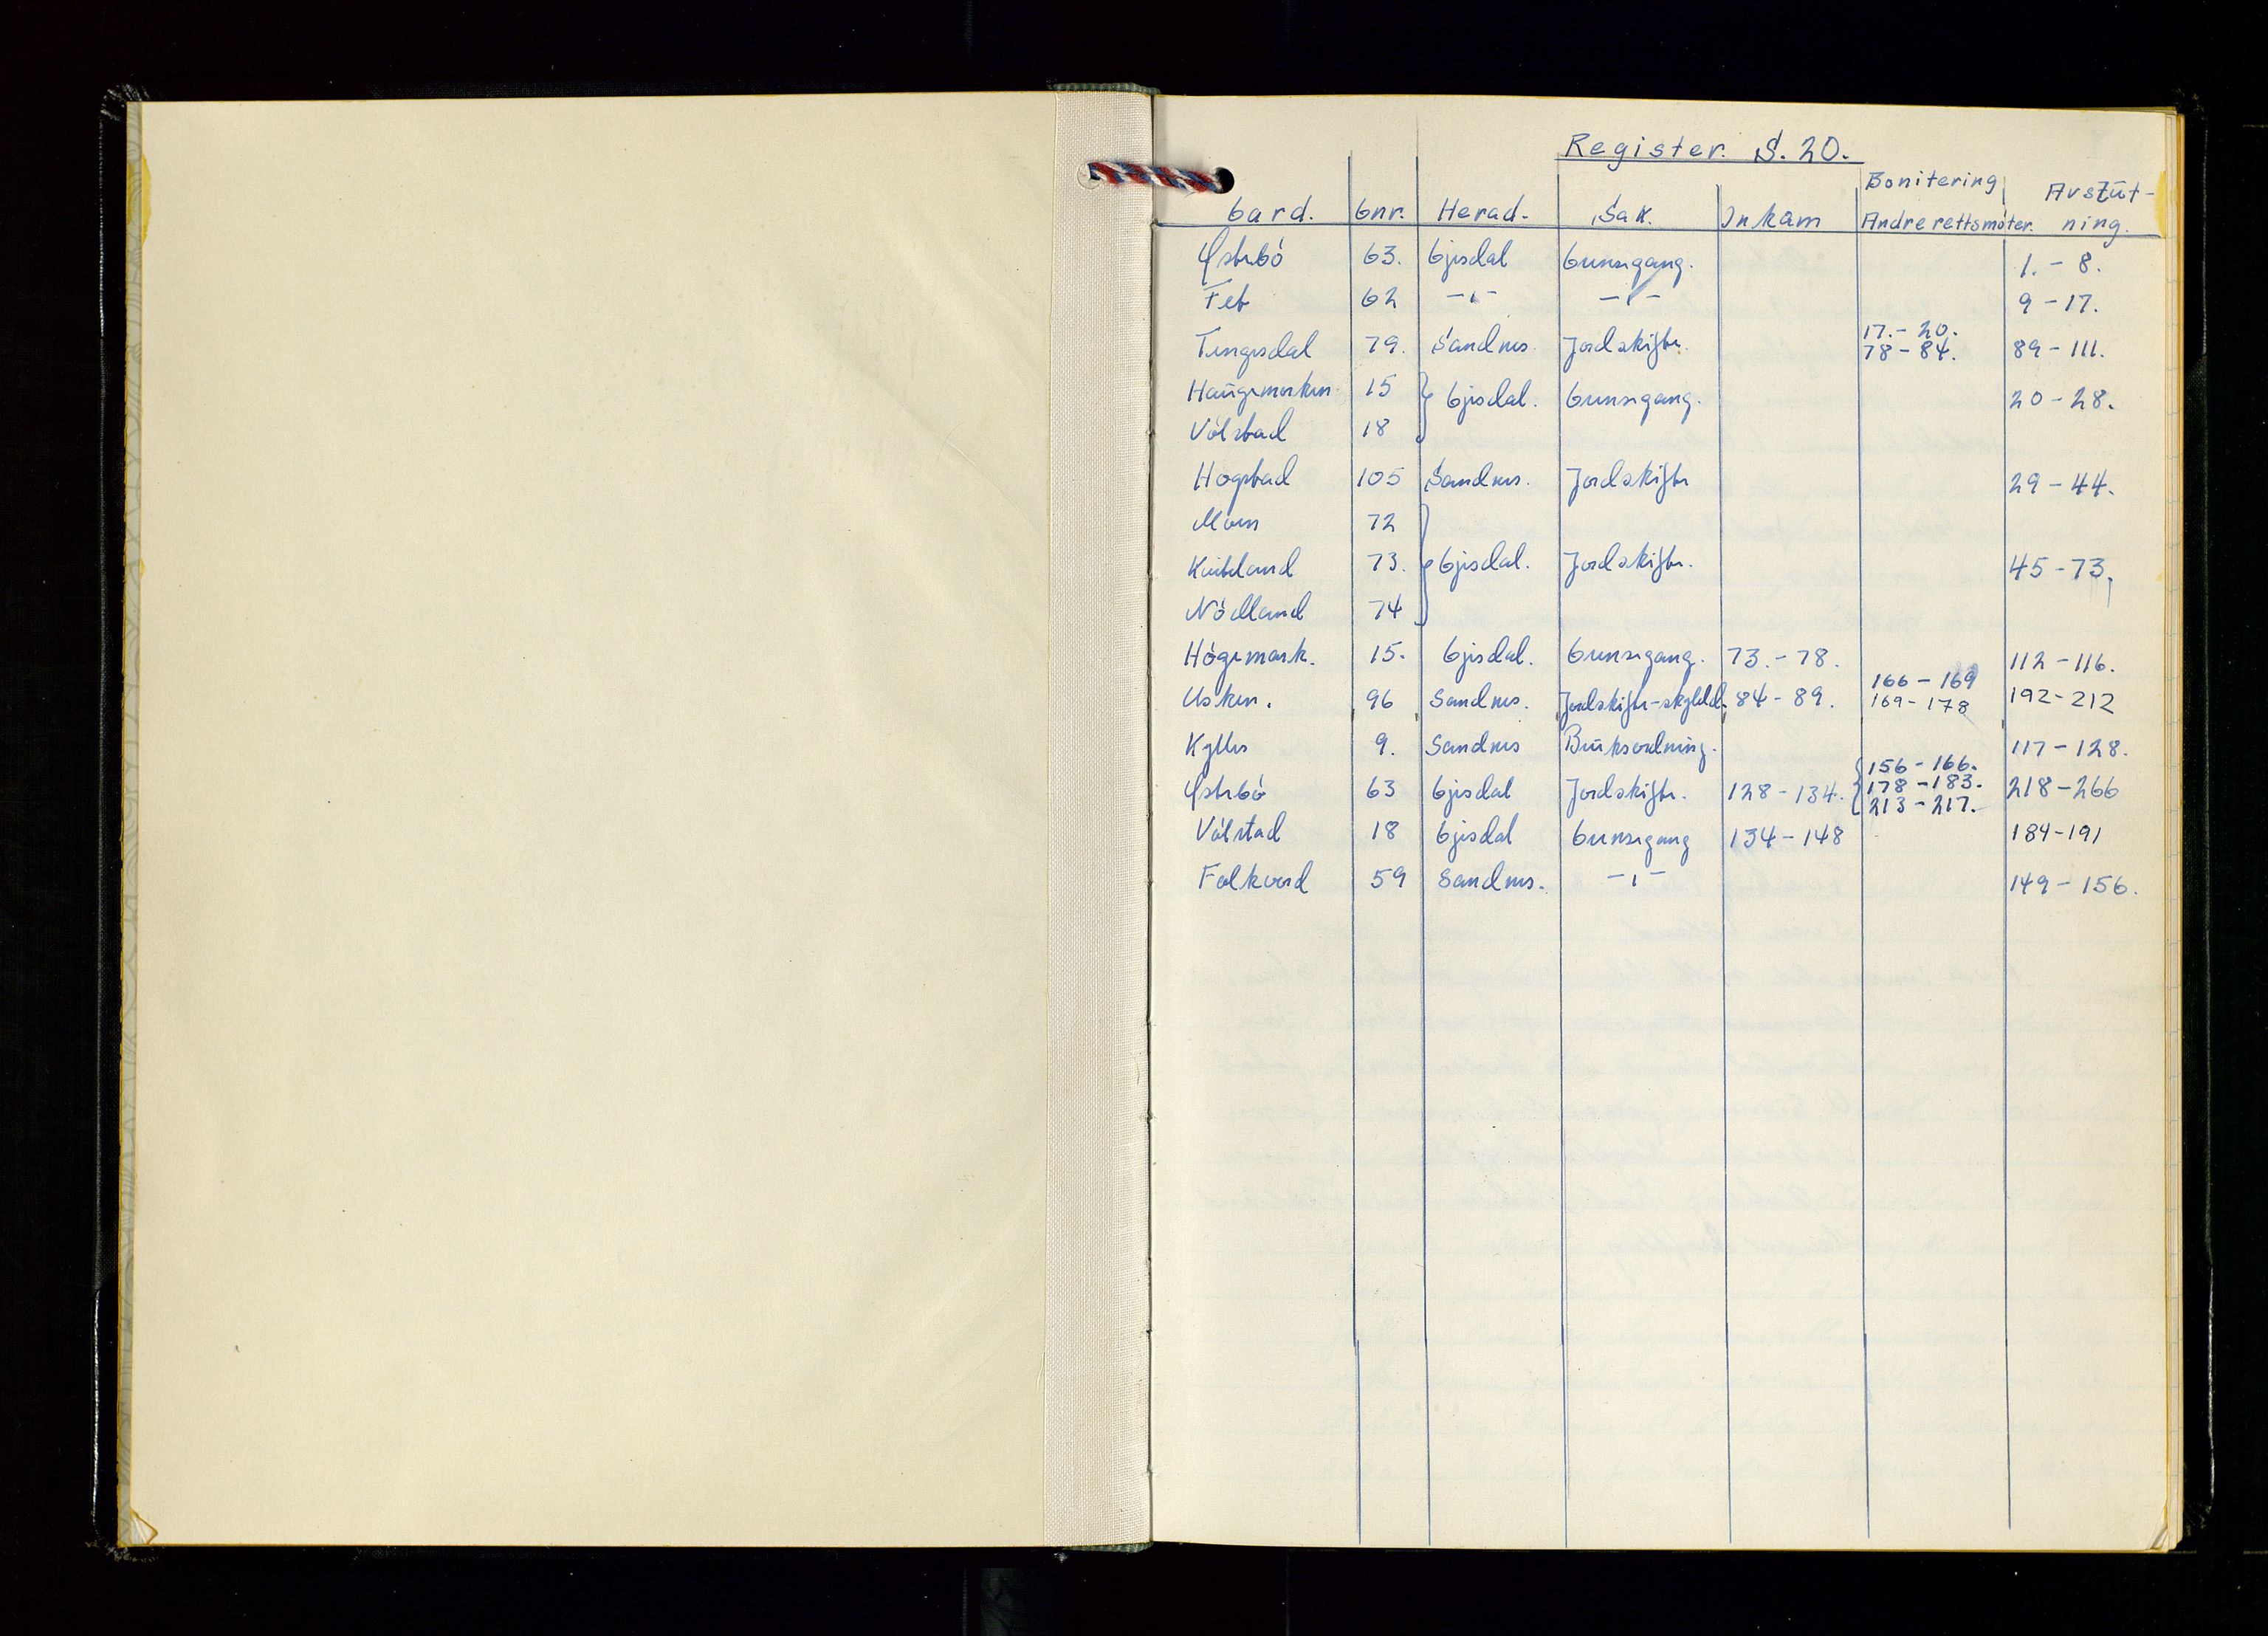 Register. S. 20.
Gard. Gnr. Herad. Sak. Inkam Bonitering Andre rettsmöter. Avslut-ning.
Østebö 63. Gjesdal Grensegang. 1. - 8.
Fet 62 -"- -"- 9 - 17.
Tengesdal 79. Sandnes Jordskifte. 17. - 20. 78 - 84. 89 - 111.
Haugemorken 15 } Gjesdal. Grensegang. 20 - 28.
Völstad 18
Hogstad 105 Sandnes. Jordskifte 29 - 44.
Moen 72
Kvitland 73. } Gjesdal. Jordskifte. 45 - 73.
Nödland 74
Högemork. 15. Gjesdal. Grensegang. 73. - 78. 112 - 116.
Usken. 96 Sandnes. Jordskifte-skyldd. 84 - 89. 166 - 169 169 - 178 192 - 212
Kylles 9. Sandnes Bruksordning. 117 - 128.
Østebö 63 Gjesdal Jordskifte. 128 - 134. { 156 - 166. 178 - 183. 213 - 217. 218 - 266
Völstad 18 Gjesdal Grensegang 134 - 148 184 - 191
Folkvord 59 Sandnes. -"- 149 - 156.